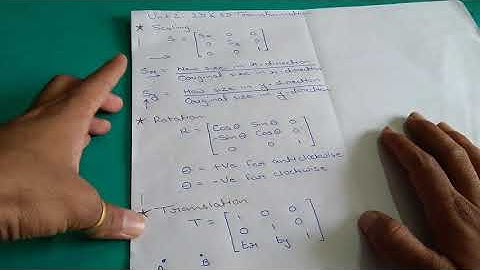 Unit 2: 2D & 3D Transformation
* Scaling
S = [Sx 0 0
0 Sy 0
0 0 1]
→ Sx = New size in x-direction
Original size in x-direction
Sy = New size in y-direction
Original size in y-direction
* Rotation
R = [Cosθ Sinθ 0
-Sinθ Cosθ 0
0 0 1]
θ = +Ve for anticlockwise
θ = -Ve for clockwise
* Translation
T = [1 0 0
0 1 0
tx ty 1]
A B